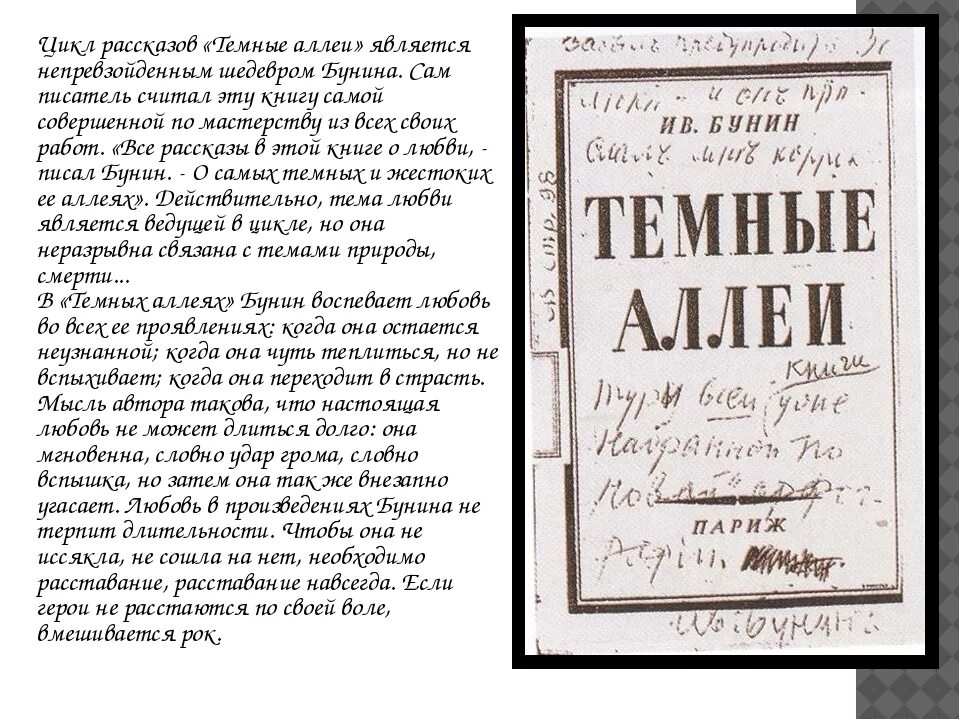 Цикл рассказов «Темные аллеи» является
непревзойденным шедевром Бунина. Сам
писатель считал эту книгу самой
совершенной по мастерству из всех своих
работ. «Все рассказы в этой книге о любви, -
писал Бунин. - О самых темных и жестоких
ее аллеях». Действительно, тема любви
является ведущей в цикле, но она
неразрывна связана с темами природы,
смерти...
В «Темных аллеях» Бунин воспевает любовь
во всех ее проявлениях: когда она остается
неузнанной; когда она чуть теплиться, но не
вспыхивает; когда она переходит в страсть.
Мысль автора такова, что настоящая
любовь не может длиться долго: она
мгновенна, словно удар грома, словно
вспышка, но затем она так же внезапно
угасает. Любовь в произведениях Бунина не
терпит длительности. Чтобы она не
иссякла, не сошла на нет, необходимо
расставание, расставание навсегда. Если
герои не расстаются по своей воле,
вмешивается рок.
ИВ. БУНИН
стр. 98
ТЕМНЫЕ
АЛЛЕИ
книги
всей
по
ПАРИЖ